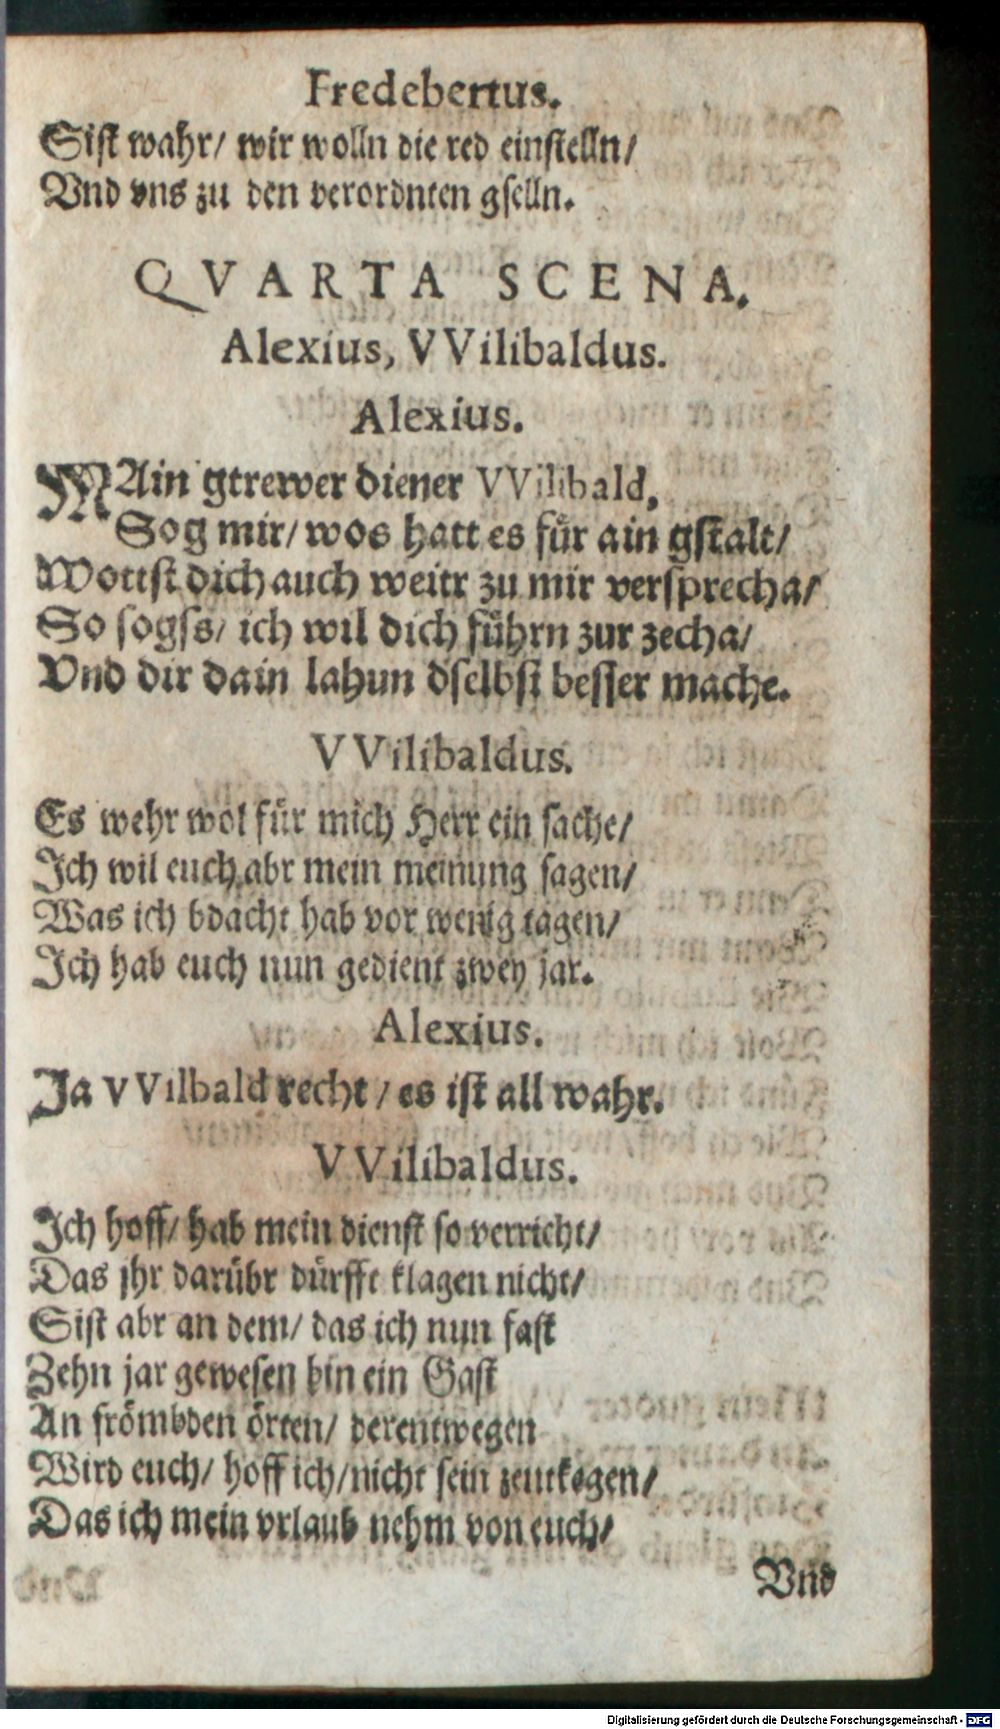 Fredebertus.
Sist wahr/ wir wolln die red einstelln/
Vnd vns zu den verordnten gselln.
QVARTA SCENA.
Alexius, VVilibaldus.
Alexius.
MAin gtrewer diener VVilibald,
Sog mir/ wos hatt es für ain gstalt/
Wottst dich auch weitr zu mir versprecha/
So sogss/ ich wil dich führn zur zecha/
Vnd dir dain lahun dselbst besser mache.
VVilibaldus.
Es wehr wol für mich Herr ein sache/
Ich wil euch abr mein meinung sagen/
Was ich bdacht hab vor wenig tagen/
Ich hab euch nun gedient zwey jar.
Alexius.
Ja VVilbald recht / es ist all wahr.
VVilibaldus.
Ich hoff/ hab mein dienst so verricht/
Das jhr darübr dürfft klagen nicht/
Sist abr an dem/ das ich nun fast
Zehn jar gewesen bin ein Gast
An frömbden örten/ derentwegen
Wird euch/ hoff ich/ nicht sein zentkegen/
Das ich mein vrlaub nehm von euch/
Vnd
Digitalisierung gefördert durch die Deutsche Forschungsgemeinschaft - DFG